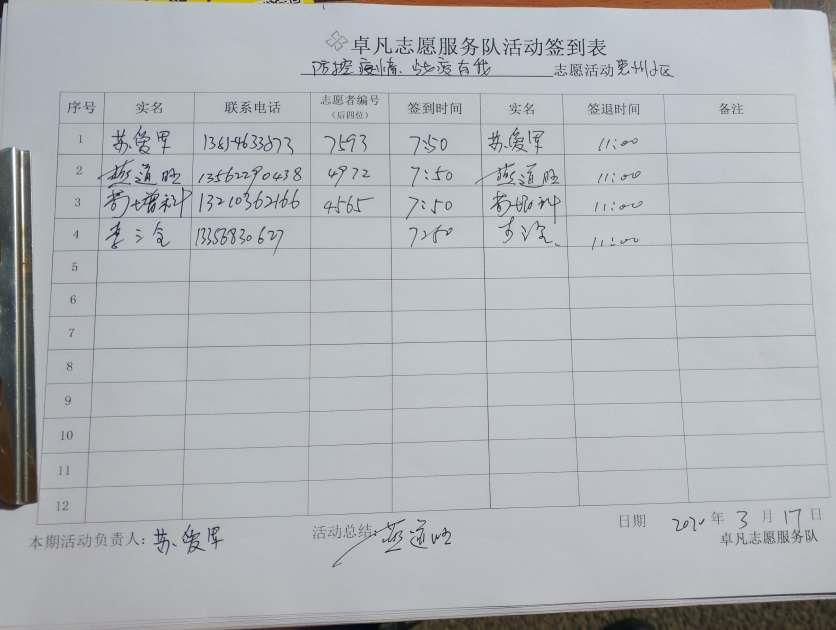 卓凡志愿服务队活动签到表
防控疫情 志愿活动
序号 实名 联系电话 志愿者编号（后四位） 签到时间 实名 签退时间 备注
1 苏爱军 7593 7:50 苏爱军 11:00
2 燕道旺 13562290438 4972 7:50 燕道旺 11:00
3 13210362166 4565 7:50 11:00
4 13356830627 7:50 11:00
5
6
7
8
9
10
11
12
本期活动负责人：苏爱军 活动总结：燕道旺 日期 2020年3月17日
卓凡志愿服务队